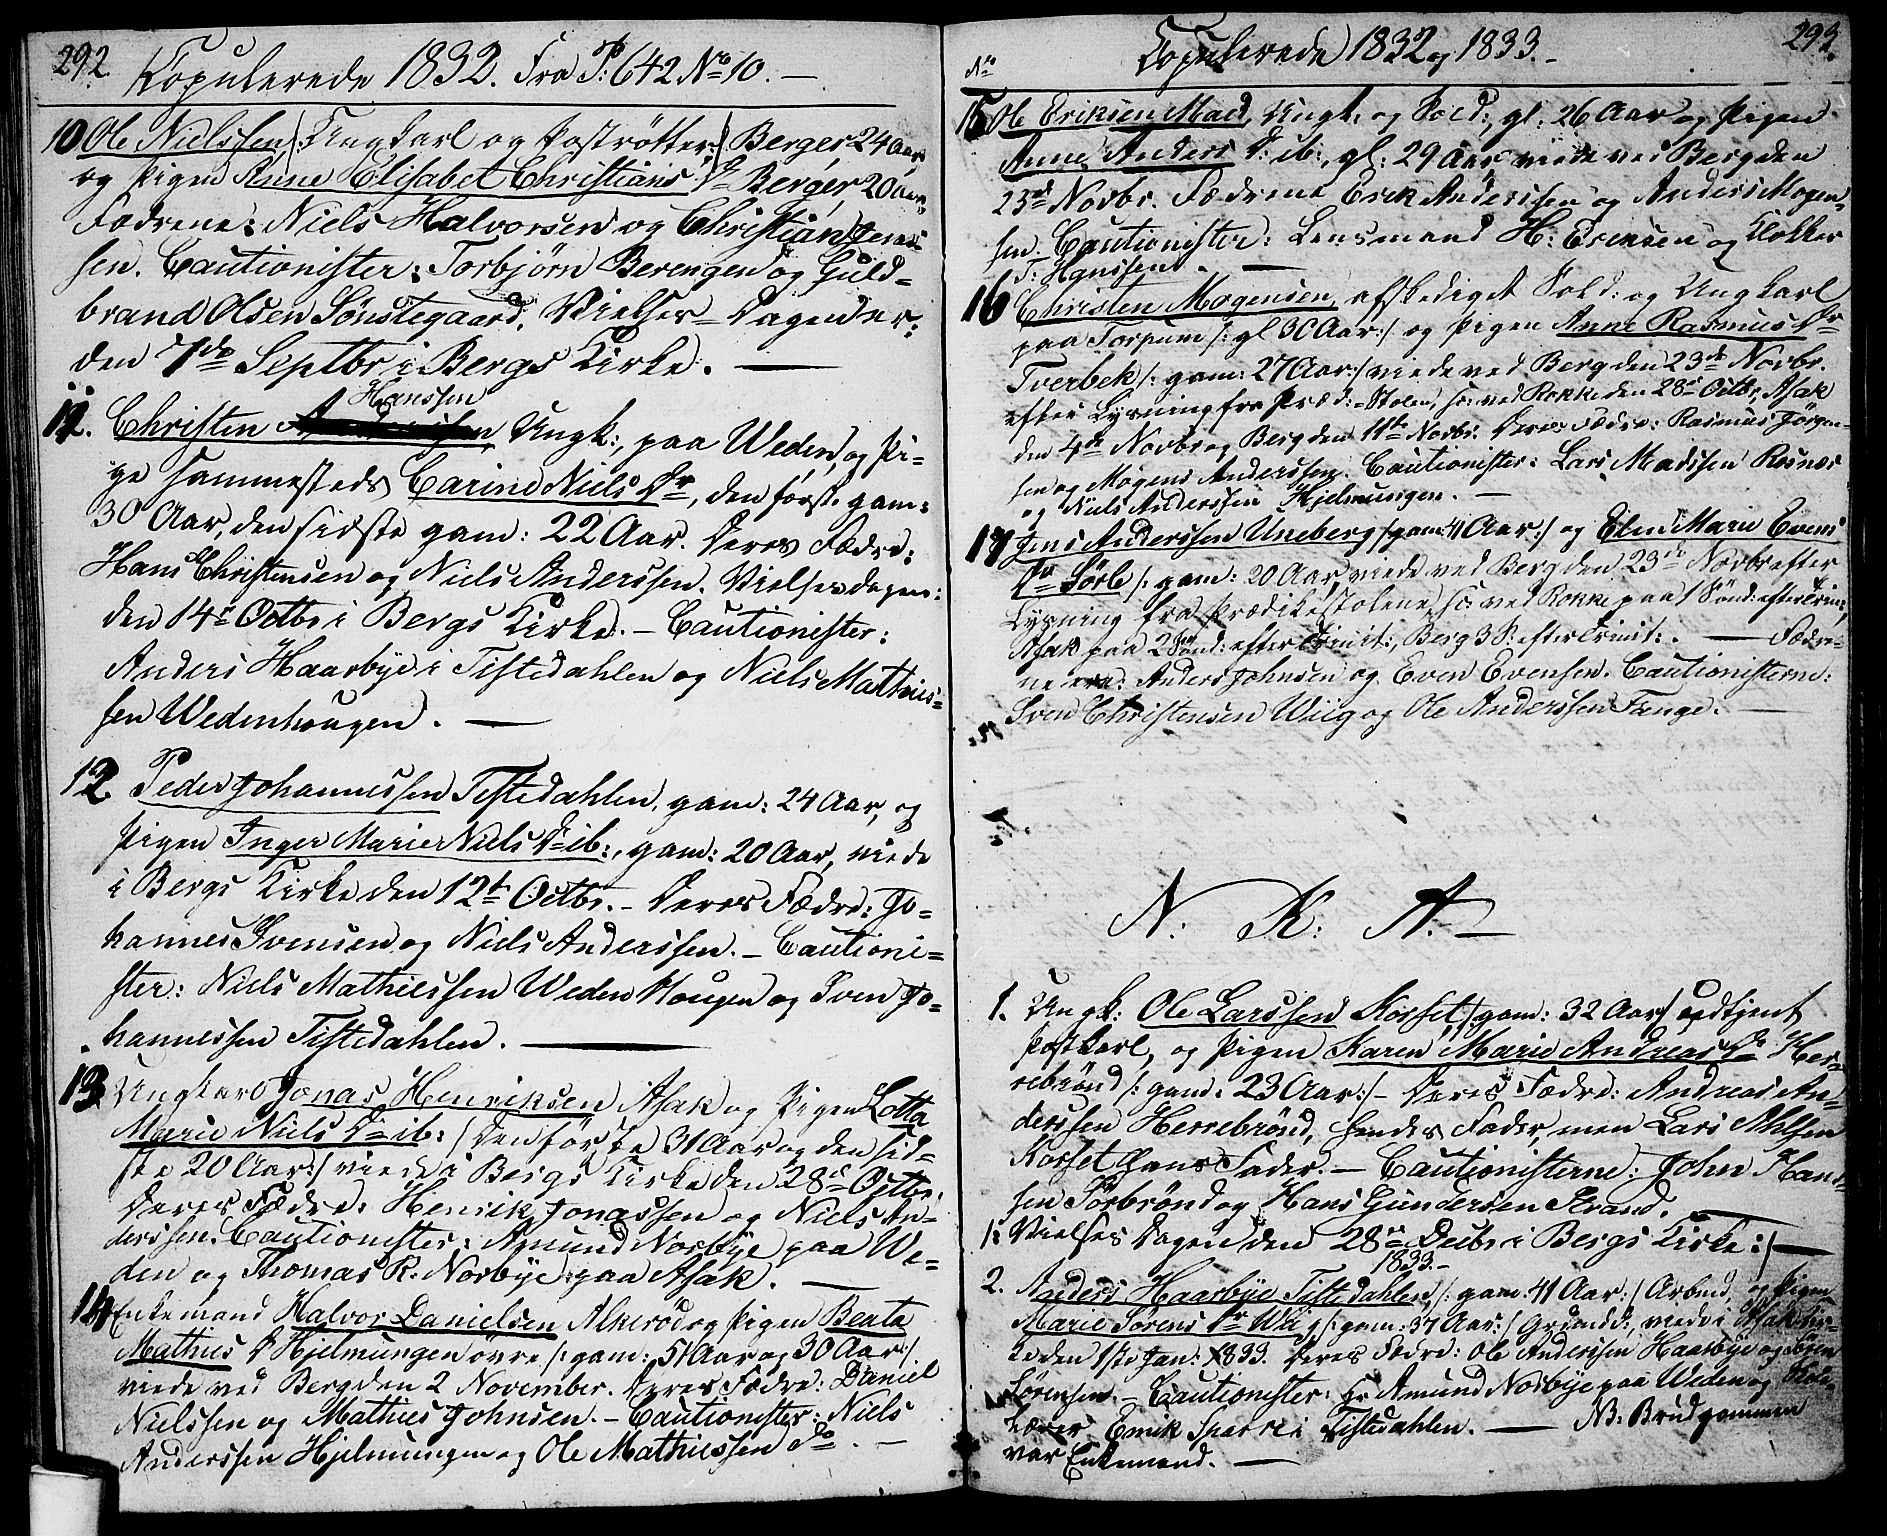 292.
Kopulerede 1832. Fra P: 642 No 10. —
10 Ole Nielssen /: Ungkarl og :/ Berger 24 Aar,
og Pigen Anne Elisabet Christians Dr Berger, 20 Aar,
Fædrene: Niels Halvorsen og Christian Jens-
sen. Cautionister: Torbjørn Berengen og Guld-
brand Olsen Sønstegaard. Vielses-Dagen er:
den 7de Septbr i Bergs Kirke. —
Hanssen
11. Christen Ungk:, paa Weden, og Pi-
ge sammesteds Carine Niels Dr, den første gam:
30 Aar, den sidste gam: 22 Aar. Deres Fædre:
Hans Christensen og Niels Anderssen. Vielsesdagen:
den 14de Octbr i Bergs Kirke. — Cautionister:
Anders Haarbye i Tistedahlen og Niels Mathies-
sen Wedenhougen. —
12. Peder Johannessen Tistedahlen, gam: 24 Aar, og
Pigen Inger Marie Niels Dr ib:, gam: 20 Aar, viede
i Bergs Kirke den 12te Octbr. — Deres Fædre: Jo-
hannes Svensen og Niels Anderssen. — Cautioni-
ster: Niels Mathiessen Weden Hougen og Sven Jo-
hannessen Tistedahlen. —
13. Ungkarl Jonas Henriksen Asak og Pigen Lotta
Marie Niels Dr ib: /: Den første 31 Aar og den sid-
ste 20 Aar :/ viede i Bergs Kirke den 28de Octbr.
Deres Fædre: Henrik Jonassen og Niels An-
derssen. Cautionister: Amund Norbye paa We-
den og Thomas R. Norbye paa Asak. —
14 Enkemand Halvor Danielsen Alkerød og Pigen Beate
Mathies D Hjelmungen øvre /: gam: 51 Aar og 30 Aar :/
viede ved Berg den 2 November. Deres Fædre: Daniel
Nielssen og Mathies Johnsen. — Cautionister: Niels
Anderssen Hjelmungen og Ole Mathiessen do. —
293.
No Kopulerede 1832 og 1833. —
15 Ole Eriksen Mad, Ungk: og Sold:, gl: 26 Aar og Pigen
Anne Anders D: ib:, gl: 29 Aar viede ved Berg den
23de Novbr. Fædrene Erik Anderssen og Anders Mogen-
sen. Cautionister: Lensmand H: Eriksen og Klokker
T: Hanssen. —
16 Christen Mogensen, afskediget Sold: og Ungkarl
paa Torpum /: gl 30 Aar :/ og Pigen Anne Rasmus Dr
Tverbek /: gam: 27 Aar :/ viede ved Berg den 23de Novbr.
efter Lysning fra Præd:-Stolen, so: ved Rokke den 28de Octbr, Asak
den 4de Novbr og Berg den 11te Novbr. Deres Fædre: Rasmus Jørgen-
sen og Mogens Anderssen. Cautionister: Lars Madssen Rosnæs
og Niels Anderssen Hjelmungen. —
17 Jens Anderssen Uneberg /: gam: 41 Aar :/ og Elen Marie Evens
Dr Sørli /: gam: 20 Aar viede ved Berg den 23de Novbr efter
Lysning fra Prædikestolene, so: ved Rokke paa 1 Sønd: efter Trin:,
Asak paa 2 Sønd: efter Trinit:, Berg 3 S: efter Trinit:. — Fædre-
ne ere: Anders Johnsen og Even Evensen. Cautionisterne:
Sven Christensen Wiig og Ole Anderssen Fange. —
N: K: A: —
1. Ungk: Ole Larssen Korset /: gam: 32 Aar :/ udtjent
Postkarl, og Pigen Karen Marie Andreas Dr Her-
rebrønd /: gam: 23 Aar :/ — Deres Fædre: Andreas An-
derssen Herrebrønd, hendes Fader, men Lars Ahlsen
Korset hans Fader. — Cautionisterne: John Hans-
sen Sørbrønd og Hans Gundersen Strand. —
/: Vielses Dagen den 28de Decbr i Bergs Kirke :/ —
1833. —
2. Anders Haarbye Tistedahlen, /: gam: 41 Aar :/ Arbmd og Pigen
Marie Sørens Dr Wii /: gam: 37 Aar :/ viede i Asak Kir-
ke den 1ste Jan: 1833. Deres Fædre: Ole Anderssen Haarbye og Søren
Sørensen. — Cautionister: Hr Amund Norbye paa Weden og Skole-
Lærer Emik Sparre i Tistedahlen. — NB: Brudgommen
var Enkemand. —